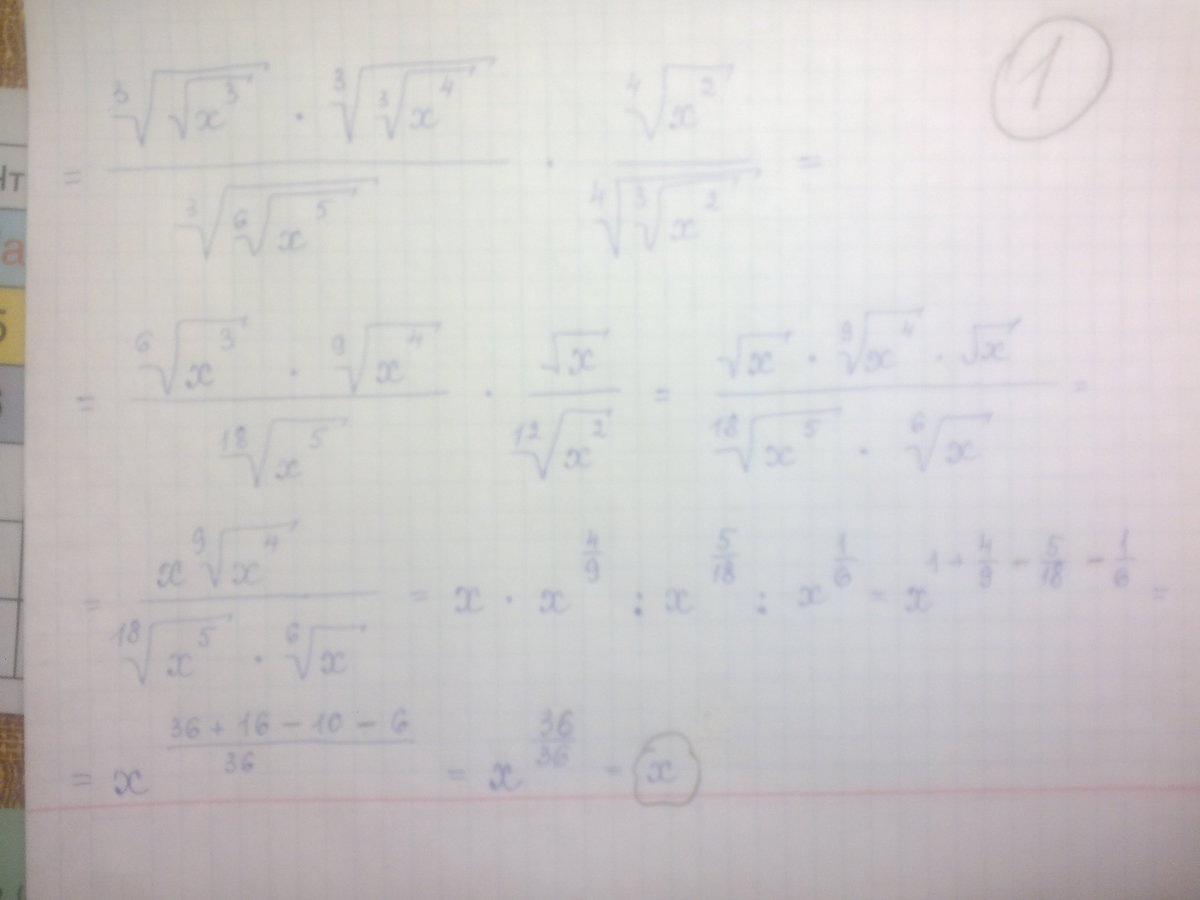 1
= \frac{\sqrt[3]{\sqrt{x^3}} \cdot \sqrt[3]{\sqrt[3]{x^4}}}{\sqrt[3]{\sqrt[6]{x^5}}} \cdot \frac{\sqrt[4]{x^2}}{\sqrt[4]{\sqrt[3]{x^2}}} =
= \frac{\sqrt[6]{x^3} \cdot \sqrt[9]{x^4}}{\sqrt[18]{x^5}} \cdot \frac{\sqrt{x}}{\sqrt[12]{x^2}} = \frac{\sqrt{x} \cdot \sqrt[9]{x^4} \cdot \sqrt{x}}{\sqrt[18]{x^5} \cdot \sqrt[6]{x}} =
= \frac{x \sqrt[9]{x^4}}{\sqrt[18]{x^5} \cdot \sqrt[6]{x}} = x \cdot x^{\frac{4}{9}} : x^{\frac{5}{18}} : x^{\frac{1}{6}} = x^{1 + \frac{4}{9} - \frac{5}{18} - \frac{1}{6}} =
= x^{\frac{36 + 16 - 10 - 6}{36}} = x^{\frac{36}{36}} = x